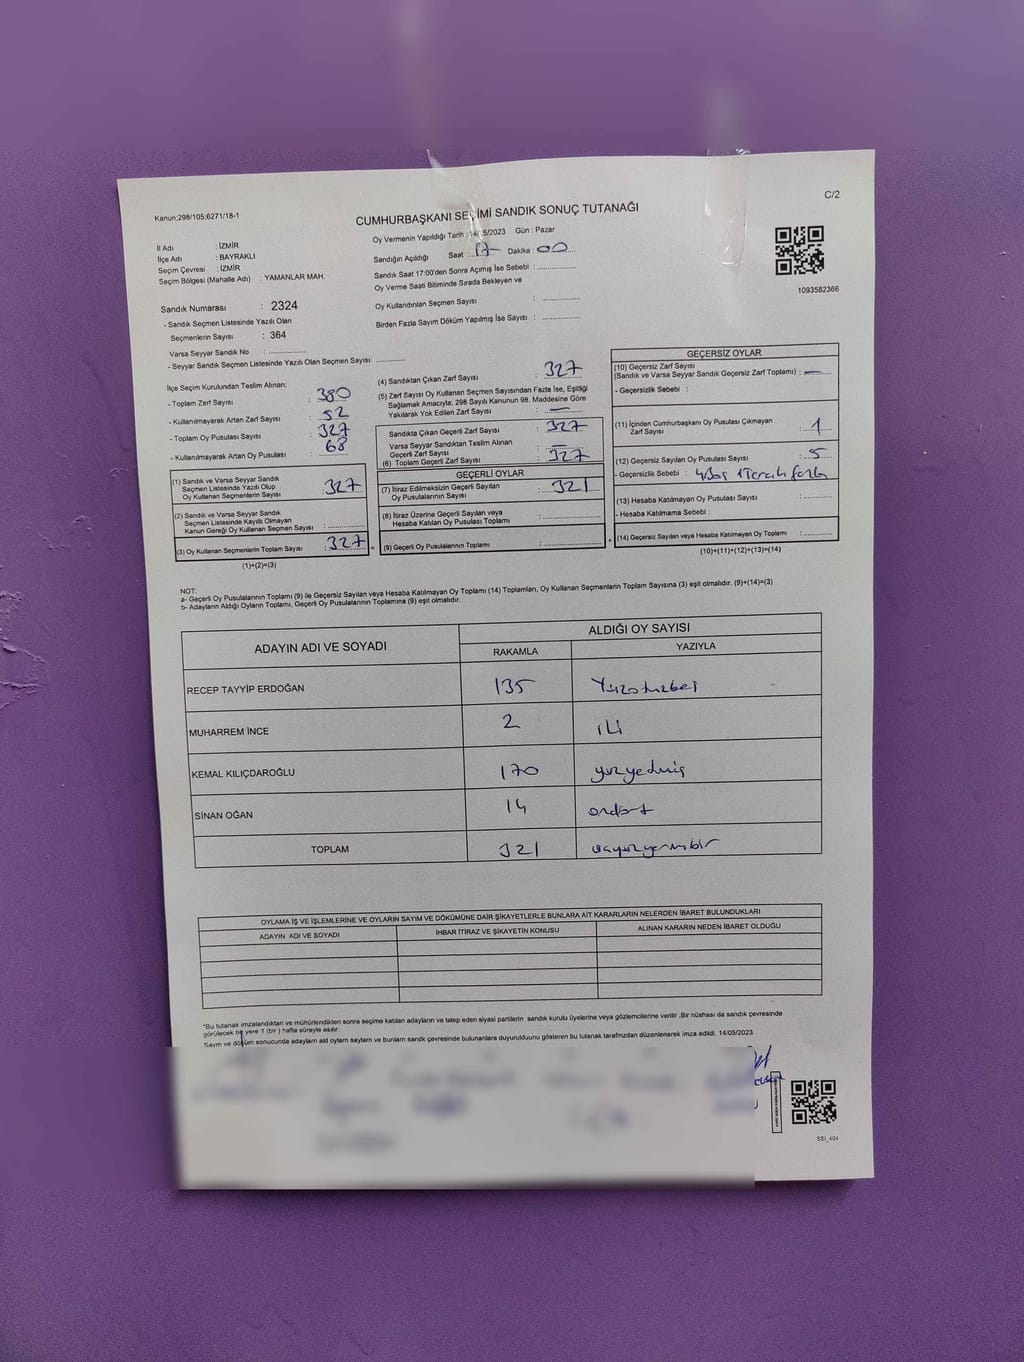 C/2
Kanun:298/105;6271/18-1
CUMHURBAŞKANI SEÇİMİ SANDIK SONUÇ TUTANAĞI
Oy Vermenin Yapıldığı Tarih : 14/05/2023 Gün : Pazar
İl Adı : İZMİR
İlçe Adı : BAYRAKLI
Seçim Çevresi : İZMİR
Seçim Bölgesi (Mahalle Adı) : YAMANLAR MAH.
Sandığın Açıldığı Saat : 17 Dakika : 00
Sandık Saat 17:00'den Sonra Açımış İse Sebebi :
Oy Verme Saati Bitiminde Sırada Bekleyen ve
Oy Kullandırılan Seçmen Sayısı :
Birden Fazla Sayım Döküm Yapılmış İse Sayısı :
1093582366
Sandık Numarası : 2324
- Sandık Seçmen Listesinde Yazılı Olan
Seçmenlerin Sayısı : 364
Varsa Seyyar Sandık No :
- Seyyar Sandık Seçmen Listesinde Yazılı Olan Seçmen Sayısı:
İlçe Seçim Kurulundan Teslim Alınan;
- Toplam Zarf Sayısı : 380
- Kullanılmayarak Artan Zarf Sayısı : 52
- Toplam Oy Pusulası Sayısı : 327
- Kullanılmayarak Artan Oy Pusulası : 68
(1) Sandık ve Varsa Seyyar Sandık
Seçmen Listesinde Yazılı Olup
Oy Kullanan Seçmenlerin Sayısı : 327
(2) Sandık ve Varsa Seyyar Sandık
Seçmen Listesinde Kayıtlı Olmayan
Kanun Gereği Oy Kullanan Seçmen Sayısı :
(3) Oy Kullanan Seçmenlerin Toplam Sayısı : 327
(1)+(2)=(3)
(4) Sandıktan Çıkan Zarf Sayısı : 327
(5) Zarf Sayısı Oy Kullanan Seçmen Sayısından Fazla İse, Eşitliği
Sağlamak Amacıyla; 298 Sayılı Kanunun 98. Maddesine Göre
Yakılarak Yok Edilen Zarf Sayısı : —
Sandıkta Çıkan Geçerli Zarf Sayısı : 327
Varsa Seyyar Sandıktan Teslim Alınan
Geçerli Zarf Sayısı : —
(6) Toplam Geçerli Zarf Sayısı : 327
GEÇERLİ OYLAR
(7) İtiraz Edilmeksizin Geçerli Sayılan
Oy Pusulalarının Sayısı : 321
(8) İtiraz Üzerine Geçerli Sayılan veya
Hesaba Katılan Oy Pusulası Toplamı :
= (9) Geçerli Oy Pusulalarının Toplamı :
+
GEÇERSİZ OYLAR
(10) Geçersiz Zarf Sayısı
(Sandık ve Varsa Seyyar Sandık Geçersiz Zarf Toplamı) : —
- Geçersizlik Sebebi :
(11) İçinden Cumhurbaşkanı Oy Pusulası Çıkmayan
Zarf Sayısı : 1
(12) Geçersiz Sayılan Oy Pusulası Sayısı : 5
- Geçersizlik Sebebi :
(13) Hesaba Katılmayan Oy Pusulası Sayısı :
- Hesaba Katılmama Sebebi :
(14) Geçersiz Sayılan veya Hesaba Katılmayan Oy Toplamı :
(10)+(11)+(12)+(13)=(14)
NOT:
a- Geçerli Oy Pusulalarının Toplamı (9) ile Geçersiz Sayılan veya Hesaba Katılmayan Oy Toplamı (14) Toplamları, Oy Kullanan Seçmenlerin Toplam Sayısına (3) eşit olmalıdır. (9)+(14)=(3)
b- Adayların Aldığı Oyların Toplamı, Geçerli Oy Pusulalarının Toplamına (9) eşit olmalıdır.
ADAYIN ADI VE SOYADI
ALDIĞI OY SAYISI
RAKAMLA YAZIYLA
RECEP TAYYİP ERDOĞAN 135 Yüzotuzbeş
MUHARREM İNCE 2 iki
KEMAL KILIÇDAROĞLU 170 yüzyetmiş
SİNAN OĞAN 14 ondört
TOPLAM 321 üçyüzyirmibir
OYLAMA İŞ VE İŞLEMLERİNE VE OYLARIN SAYIM VE DÖKÜMÜNE DAİR ŞİKAYETLERLE BUNLARA AİT KARARLARIN NELERDEN İBARET BULUNDUKLARI
ADAYIN ADI VE SOYADI İHBAR İTİRAZ VE ŞİKAYETİN KONUSU ALINAN KARARIN NEDEN İBARET OLDUĞU
*Bu tutanak imzalandıktan ve mühürlendikten sonra seçime katılan adayların ve talep eden siyasi partilerin sandık kurulu üyelerine veya gözlemcilerine verilir .Bir nüshası da sandık çevresinde
görülecek bir yere 1 (bir) hafta süreyle asılır.
Sayım ve döküm sonucunda adayların ald oyların sayları ve bunların sandk çevresinde bulunanlara duyurulduunu gösteren bu tutanak tarafmızdan düzenlenerek imza edildi. 14/05/2023
SSI_404